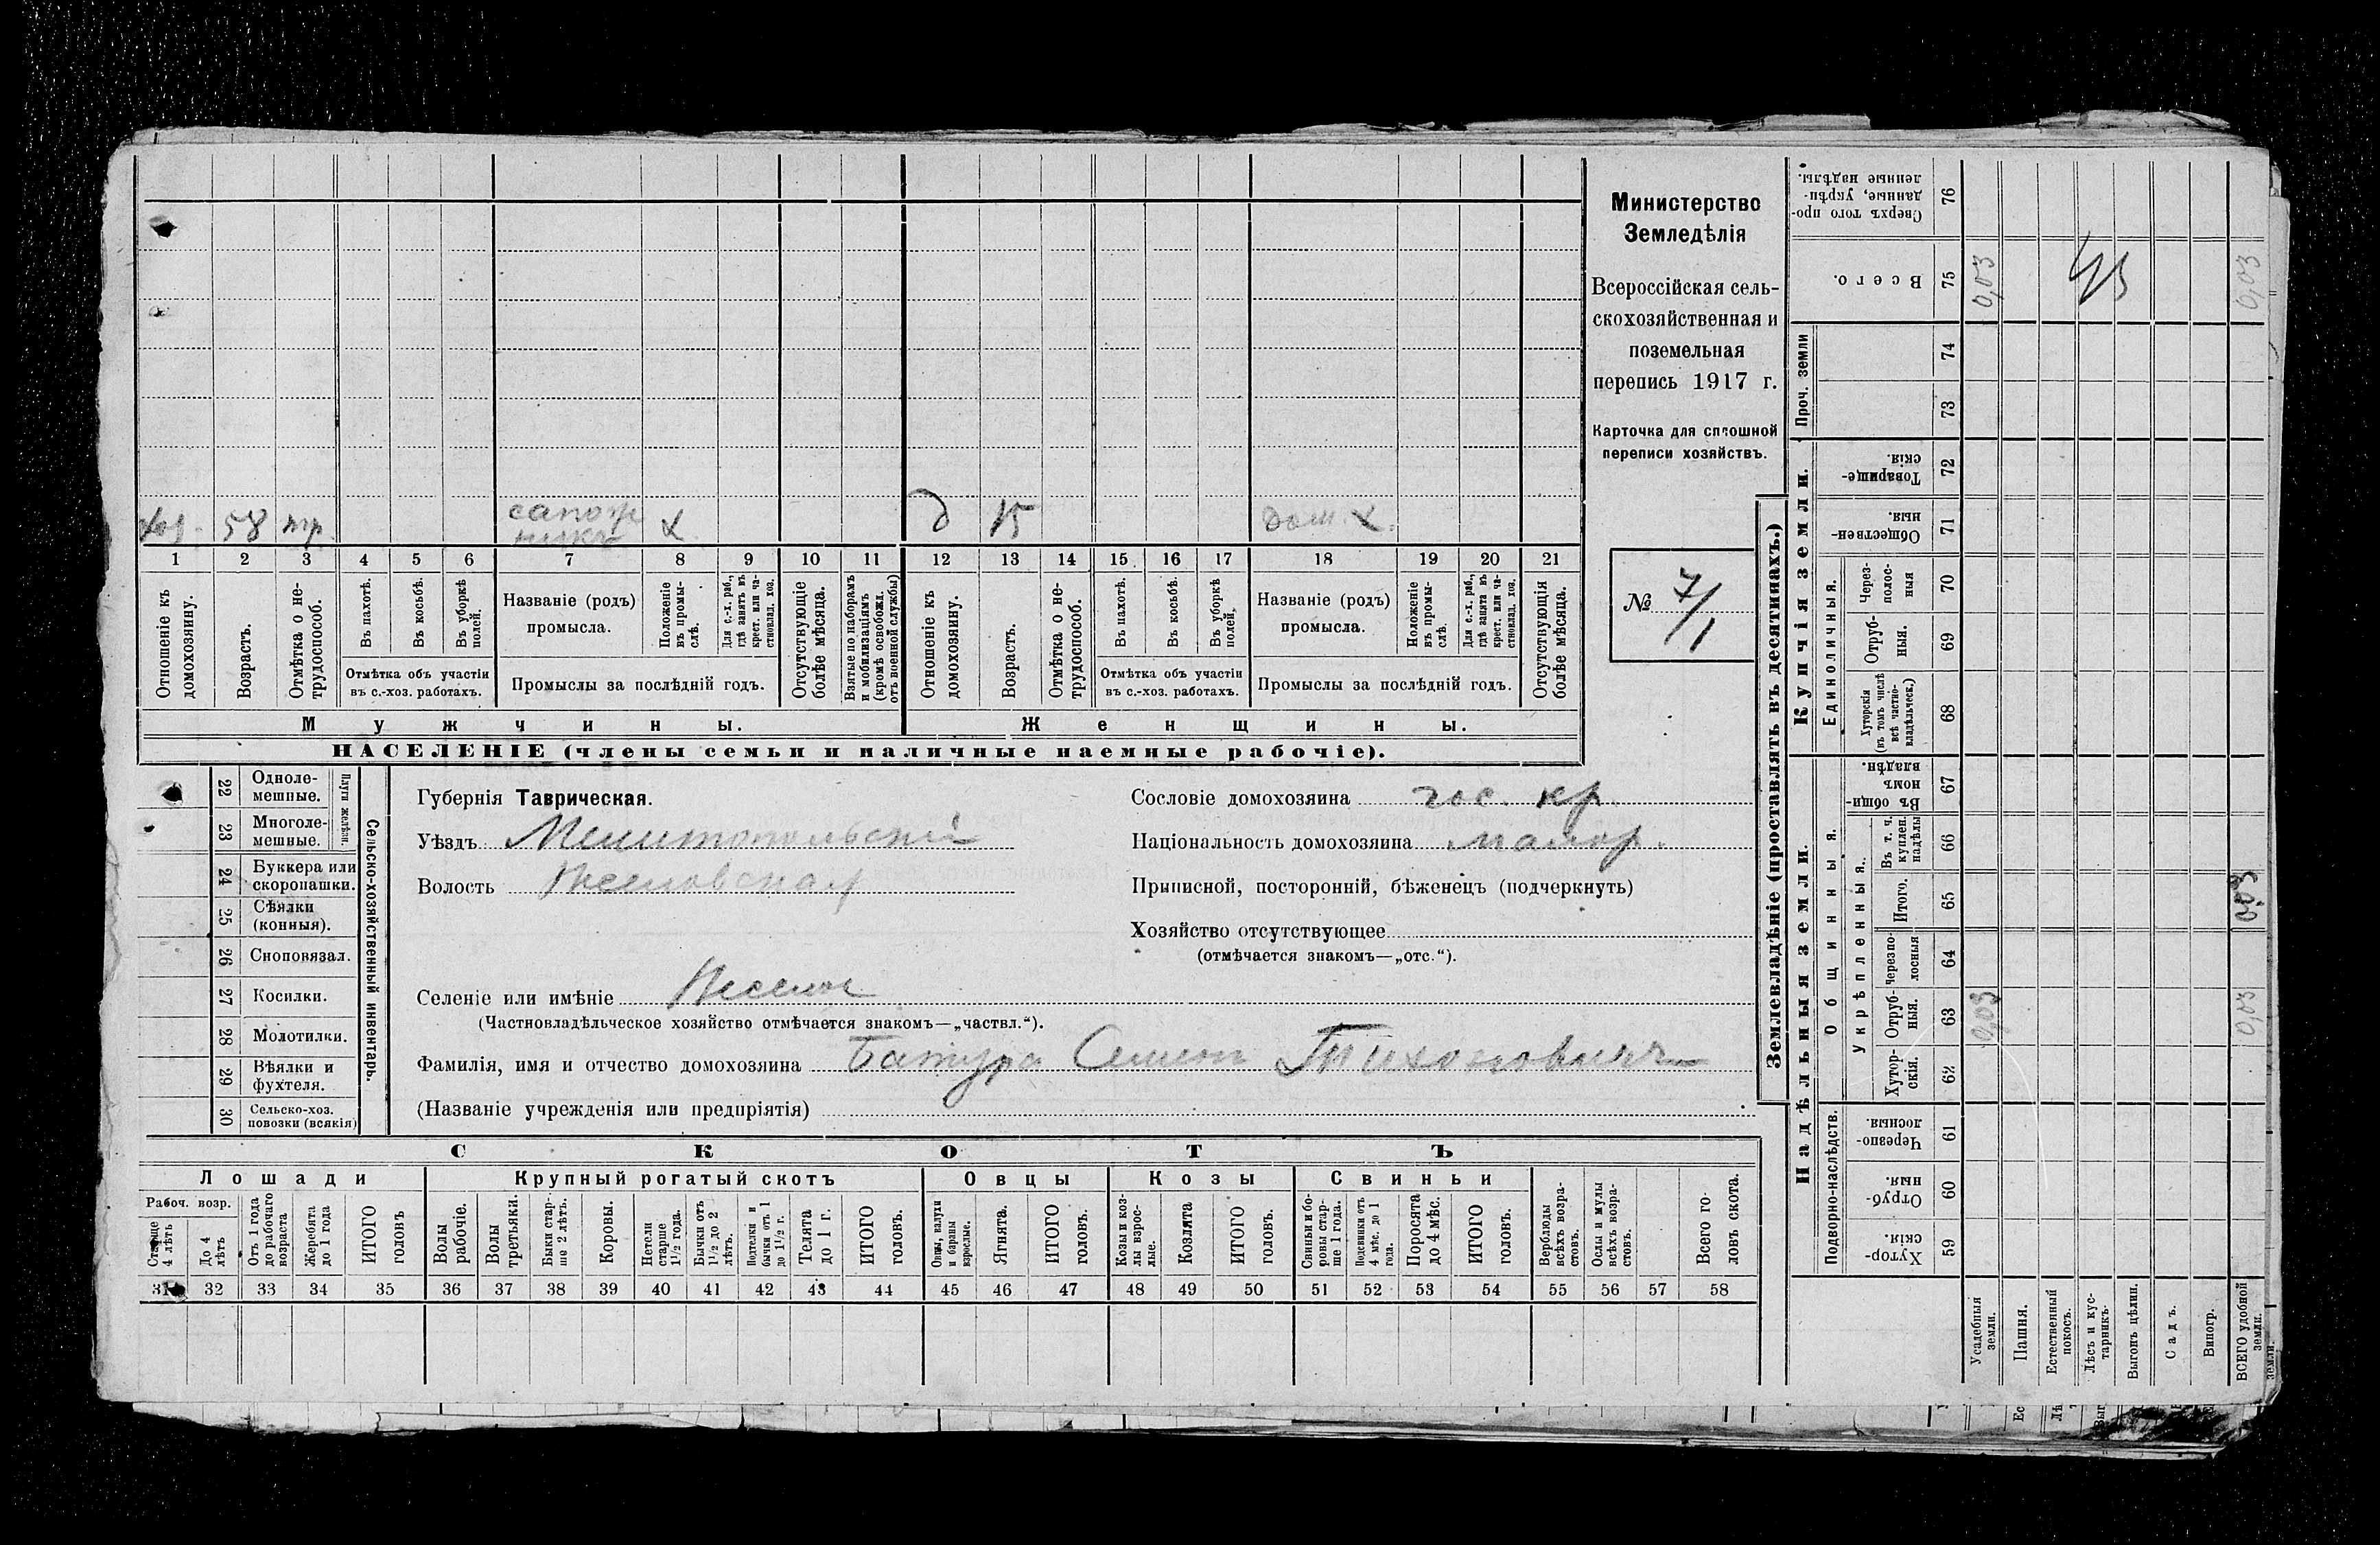 хоз. 58 тр. сапож- х д 15 дом. х.
никъ
1 2 3 4 5 6 7 8 9 10 11 12 13 14 15 16 17 18 19 20 21
Отношеніе къ домохозяину.
Возрастъ.
Отмѣтка о не-трудоспособ.
Въ пахотѣ.
Въ косьбѣ.
Въ уборкѣ полей.
Отмѣтка объ участіи
въ с.-хоз. работахъ.
Названіе (родъ)
промысла.
Положеніе въ промы-слѣ.
Для с.-х. раб., гдѣ занятъ въ крест. или ча-стновлад. хоз.
Промыслы за послѣдній годъ.
Отсутствующіе болѣе мѣсяца.
Взятые по наборамъ и мобилизаціямъ (кромѣ освобожд. отъ военной службы)
Отношеніе къ домохозяину.
Возрастъ.
Отмѣтка о не-трудоспособ.
Въ пахотѣ.
Въ косьбѣ.
Въ уборкѣ полей.
Отмѣтка объ участіи
въ с.-хоз. работахъ.
Названіе (родъ)
промысла.
Положеніе въ промы-слѣ.
Для с.-х. раб., гдѣ занята въ крест. или ча-стновлад. хоз.
Промыслы за послѣдній годъ.
Отсутствующія болѣе мѣсяца.
Мужчины.
Женщины.
НАСЕЛЕНІЕ (члены семьи и наличные наемные рабочіе).
Министерство
Земледѣлія
Всероссійская сель-
скохозяйственная и
поземельная
перепись 1917 г.
Карточка для сплошной
переписи хозяйствъ.
№ 7/1
22 Одноле-мешные.
23 Многоле-мешные.
Плуги желѣзн.
24 Буккера или скоропашки.
25 Сѣялки (конныя).
26 Сноповязал.
27 Косилки.
28 Молотилки.
29 Вѣялки и фухтеля.
30 Сельско-хоз. повозки (всякія)
Сельско-хозяйственный инвентарь.
Губернія Таврическая.
Уѣздъ Мелитопольскій
Волость Веселовская
Сословіе домохозяина гос. кр.
Національность домохозяина малор.
Приписной, посторонній, бѣженецъ (подчеркнуть)
Хозяйство отсутствующее
(отмѣчается знакомъ—„отс.“).
Селеніе или имѣніе Веселое
(Частновладѣльческое хозяйство отмѣчается знакомъ—„частвл.“).
Фамилія, имя и отчество домохозяина Батура Семенъ Тихоновичъ
(Названіе учрежденія или предпріятія)
СКОТЪ
Лошади Крупный рогатый скотъ Овцы Козы Свиньи
Рабоч. возр.
Старше 4 лѣтъ
До 4 лѣтъ
Отъ 1 года до рабочаго возраста
Жеребята до 1 года
ИТОГО головъ
Волы рабочіе.
Волы третьяки.
Быки стар-ше 2 лѣтъ.
Коровы.
Нетели старше 1½ года.
Бычки отъ 1½ до 2 лѣтъ.
Подтелки и бычки отъ 1 до 1½ г.
Телята до 1 г.
ИТОГО головъ.
Овцы, валухи и бараны взрослые.
Ягнята.
ИТОГО головъ.
Козы и коз-лы взрос-лые.
Козлята
ИТОГО головъ.
Свиньи и бо-ровы стар-ше 1 года.
Подсвинки отъ 4 мѣс. до 1 года.
Поросята до 4 мѣс.
ИТОГО головъ.
Верблюды всѣхъ возра-стовъ.
Ослы и мулы всѣхъ возра-стовъ.
Всего го-ловъ скота.
31 32 33 34 35 36 37 38 39 40 41 42 43 44 45 46 47 48 49 50 51 52 53 54 55 56 57 58
Землевладѣніе (проставлять въ десятинахъ.)
Надѣльныя земли.
Купчія земли.
Проч. земли
Подворно-наслѣдств.
Общинныя.
Укрѣпленныя.
Единоличныя.
Сверхъ того про-данные, укрѣп-ленные надѣлы. 76
Всего. 75 0,03 0,03
74
73
Товарище-скія. 72
Обществен-ныя. 71
Через-полос-ныя 70
Отруб-ныя. 69
Хуторскія (въ томъ числѣ всѣ частно-владѣльческ.) 68
Въ общи-номъ владѣн. 67
Въ т. ч. куплен. надѣлы 66
Итого. 65 0,03
Черезпо-лосныя 64
Отруб-ныя. 63 0,03 0,03
Хутор-скія. 62
Черезпо-лосныя. 61
Отруб-ныя. 60
Хутор-скія. 59
Усадебныя земли.
Пашня.
Естественный покосъ.
Лѣсъ и кус-тарникъ.
Выгонъ цѣлин.
Садъ.
Виногр.
ВСЕГО удобной земли.